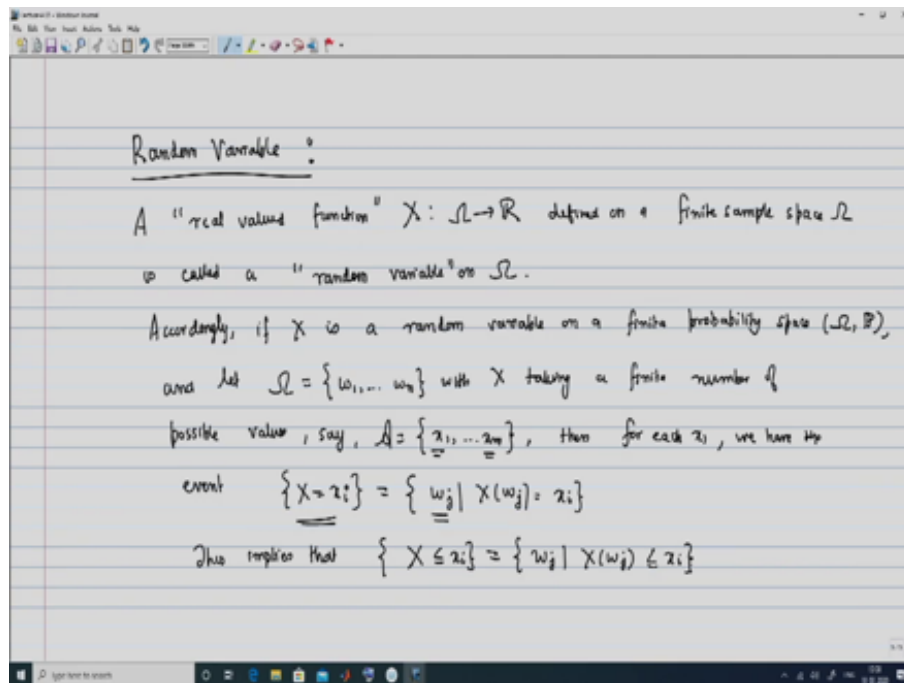 File Edit View Insert Actions Tools Help
Random Variable :
A "real valued function" X : Ω → ℝ defined on a finite sample space Ω
is called a "random variable" on Ω.
Accordingly, if X is a random variable on a finite probability space (Ω, ℙ),
and let Ω = {ω₁, ... ωₙ} with X taking a finite number of
possible values, say, A = {x₁, ... xₘ}, then for each xᵢ, we have the
event {X = xᵢ} = {ωⱼ | X(ωⱼ) = xᵢ}
This implies that {X ≤ xᵢ} = {ωⱼ | X(ωⱼ) ≤ xᵢ}
Type here to search